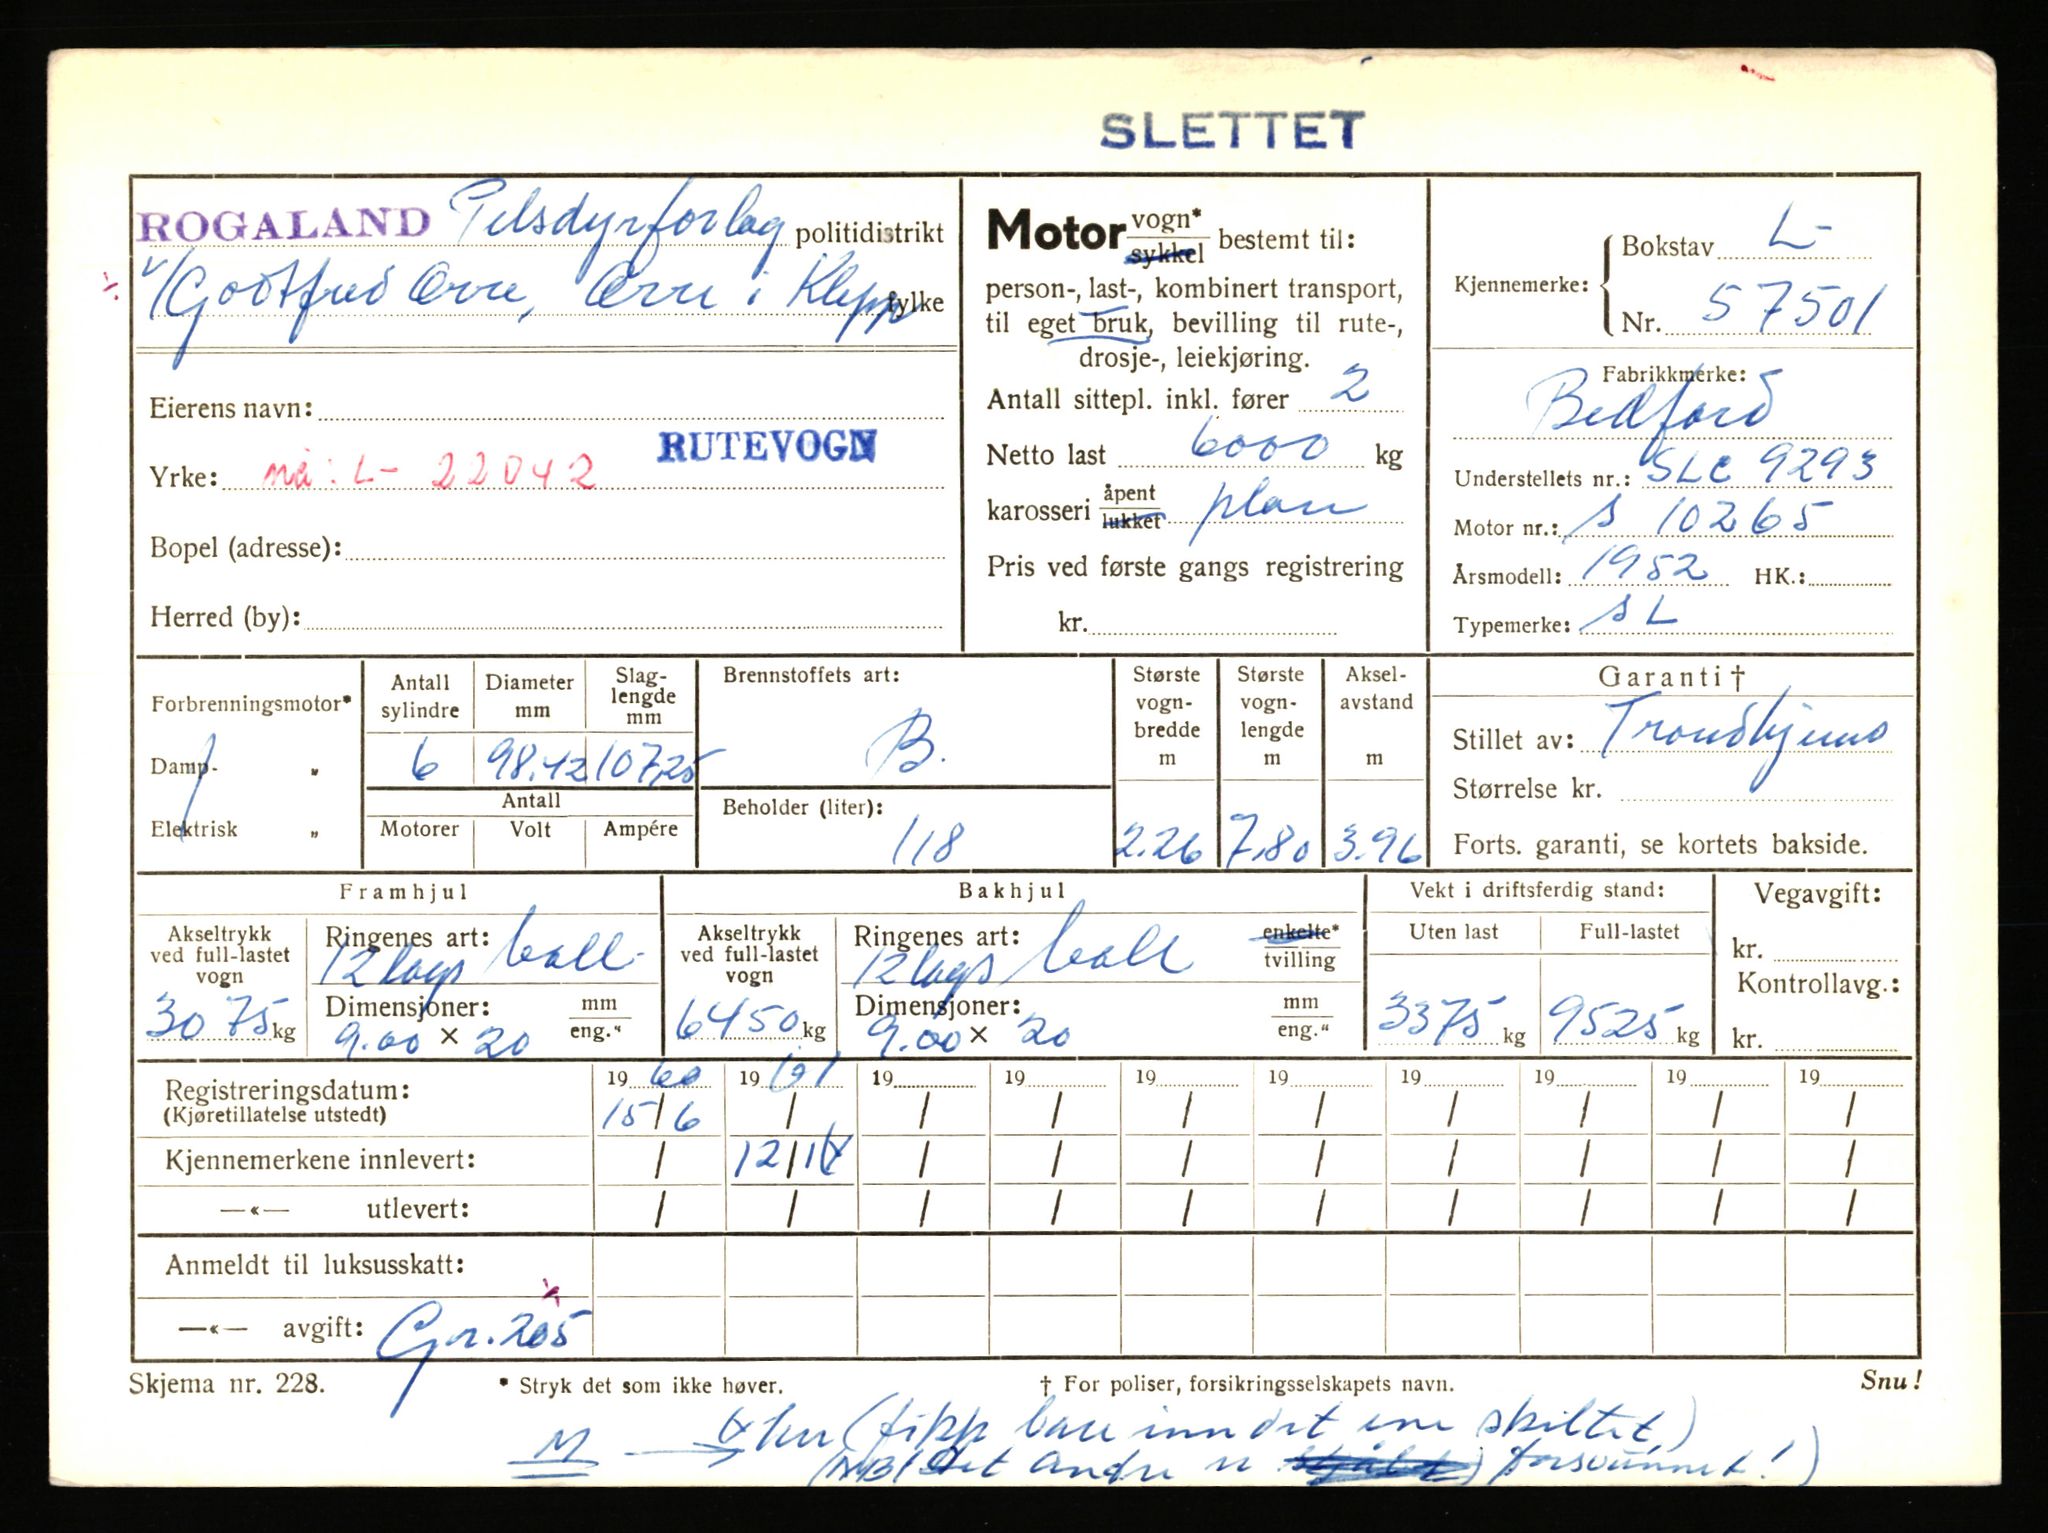 SLETTET
ROGALAND Pelsdyrforlag politidistrikt
v/Godtfred Orre, Orre i Klepp fylke
Eierens navn:
Yrke: nå: L- 22042 RUTEVOGN
Bopel (adresse):
Herred (by):
Motor vogn* sykkel bestemt til:
person-, last-, kombinert transport,
til eget bruk, bevilling til rute-,
drosje-, leiekjøring.
Antall sittepl. inkl. fører 2
Netto last 6000 kg
karosseri åpent lukket plan
Pris ved første gangs registrering
kr.
Kjennemerke: Bokstav L-
Nr. 57501
Fabrikkmerke:
Bedford
Understellets nr.: SLC 9293
Motor nr.: S 10265
Årsmodell: 1952 HK.:
Typemerke: SL
Forbrenningsmotor*
Damp- „
Elektrisk „
Antall sylindre 6
Diameter mm 98.42
Slag-lengde mm 107,25
Antall
Motorer Volt Ampére
Brennstoffets art:
B.
Beholder (liter):
118
Største vogn-bredde m 2.26
Største vogn-lengde m 7.80
Aksel-avstand m 3.96
Garanti †
Stillet av: Trondhjems
Størrelse kr.
Forts. garanti, se kortets bakside.
Framhjul
Akseltrykk ved full-lastet vogn 3075 kg
Ringenes art: ball-
12 lags
Dimensjoner: mm
9.00 × 20 eng."
Bakhjul
Akseltrykk ved full-lastet vogn 6450 kg
Ringenes art: ball enkelte* tvilling
12 lags
Dimensjoner: mm
9.00 × 20 eng."
Vekt i driftsferdig stand:
Uten last 3375 kg
Full-lastet 9525 kg
Vegavgift:
kr.
Kontrollavg.:
kr.
Registreringsdatum: 19 60 19 61 19 19 19 19 19 19 19 19
(Kjøretillatelse utstedt) 15/6 / / / / / / / / /
Kjennemerkene innlevert: / 12/ / / / / / / / /
—«— utlevert: / / / / / / / / / /
Anmeldt til luksusskatt:
—«— avgift: Gr. 205
Skjema nr. 228. * Stryk det som ikke høver. † For poliser, forsikringsselskapets navn. Snu!
M → (tipp bare inn det ene skiltet,)
(NB! det andre er forsvunnet!)